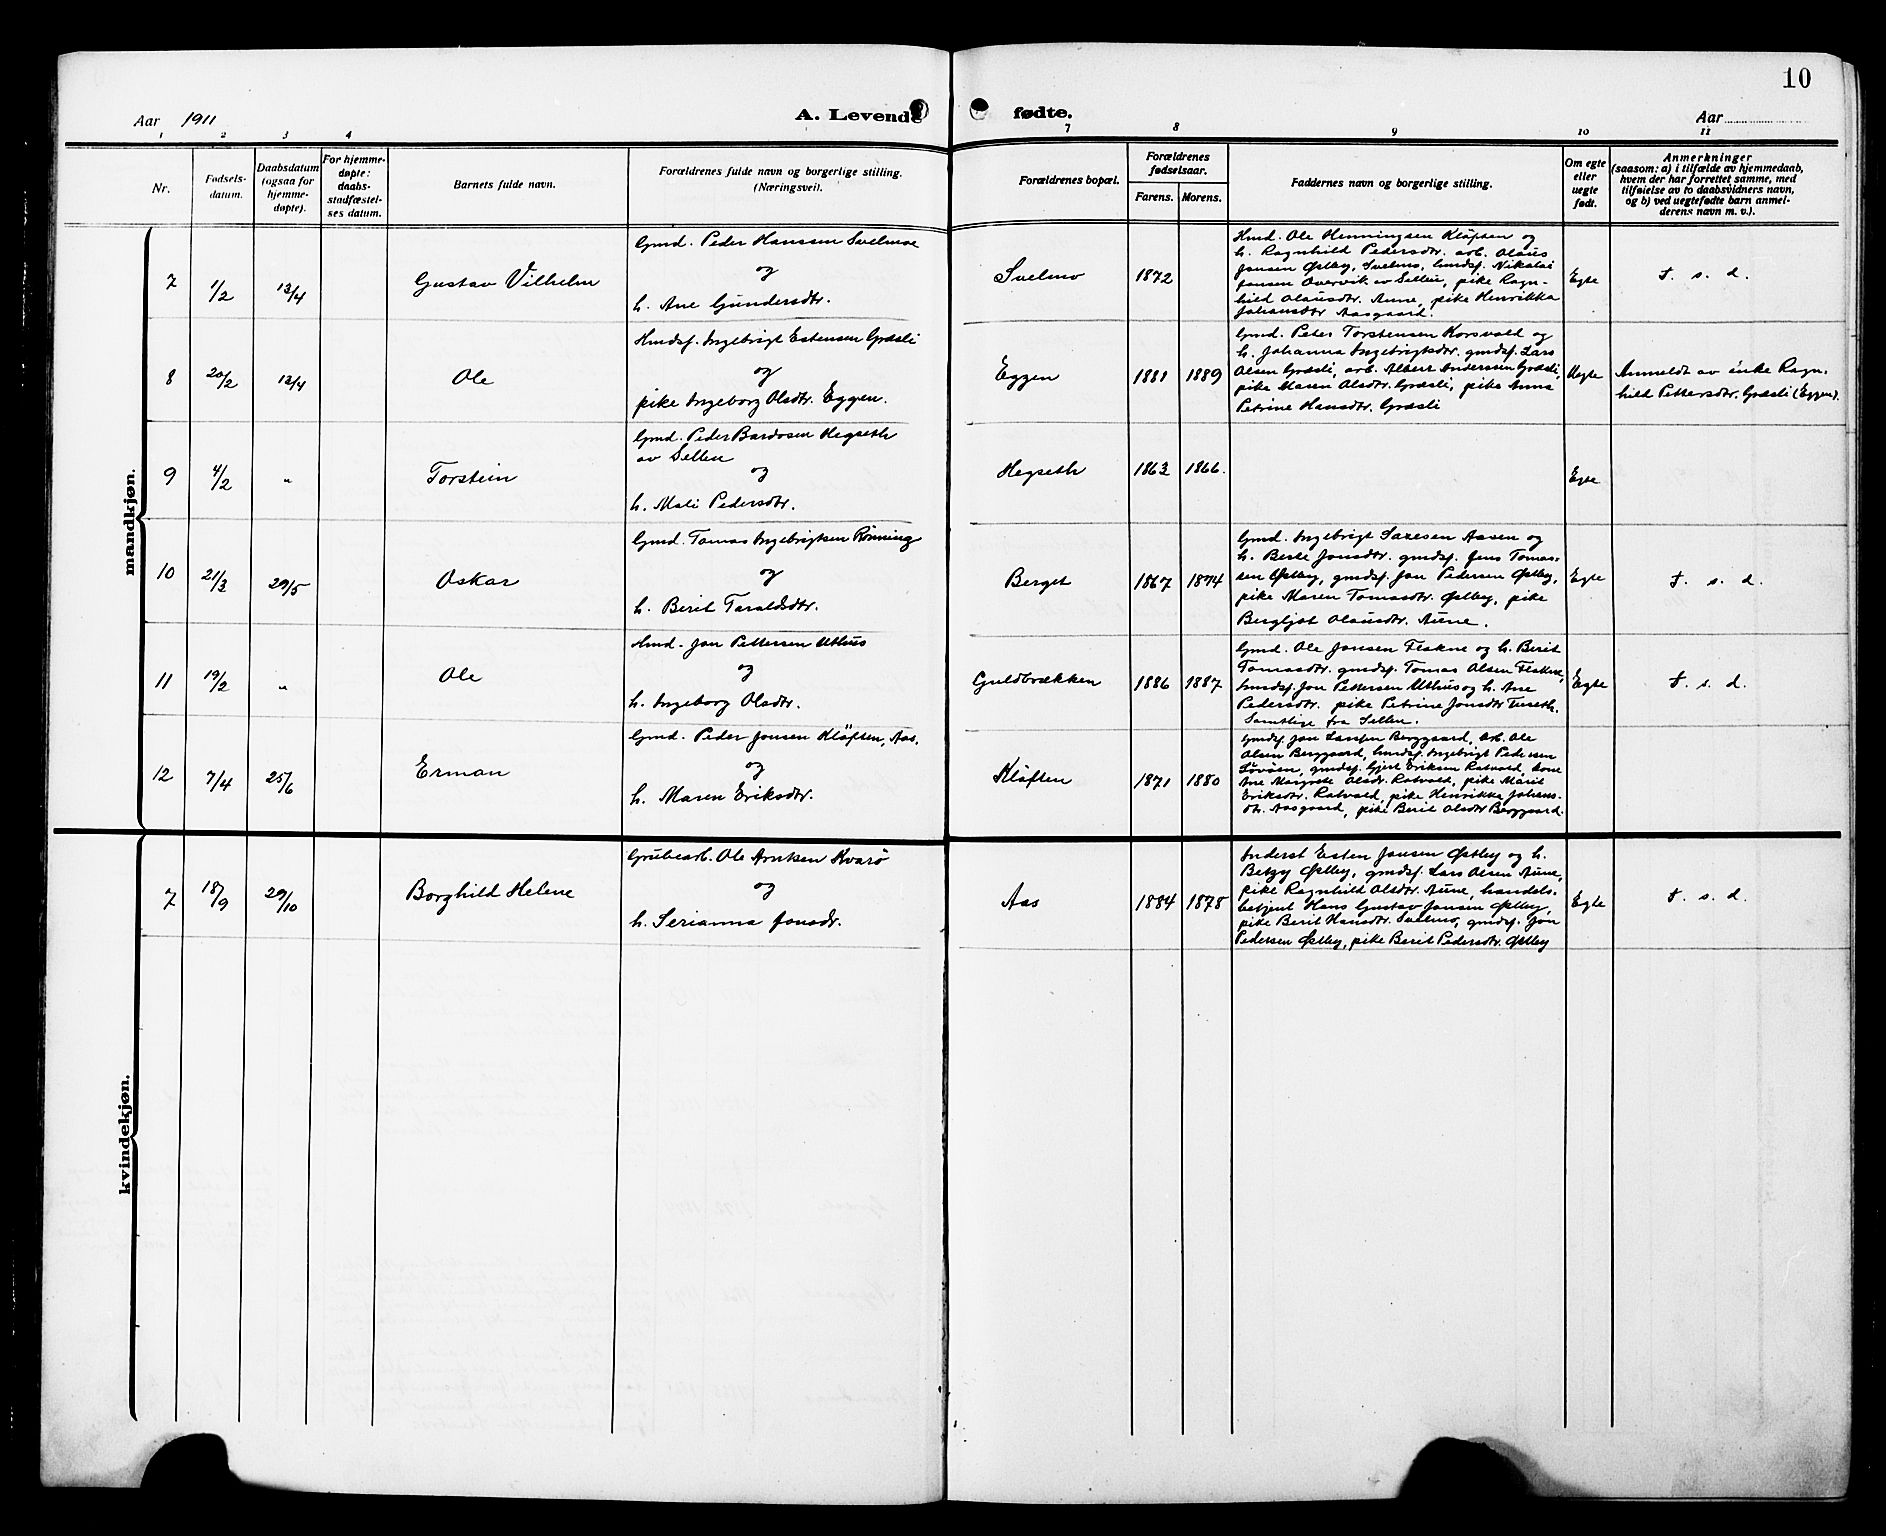 10
Aar 1911
A. Levende fødte.
Aar
1 2 3 4 7 8 9 10 11
Nr.
Fødsels-
datum.
Daabsdatum
(ogsaa for
hjemme-
døpte).
For hjemme-
døpte:
daabs-
stadfæstel-
ses datum.
Barnets fulde navn.
Forældrenes fulde navn og borgerlige stilling.
(Næringsvei).
Forældrenes bopæl.
Forældrenes
fødselsaar.
Farens. Morens.
Faddernes navn og borgerlige stilling.
Om egte
eller
uegte
født.
Anmerkninger
(saasom: a) i tilfælde av hjemmedaab,
hvem der har forrettet samme, med
tilføielse av to daabsvidners navn,
og b) ved uegtefødte barn anmel-
derens navn m. v.).
mandkjøn.
7
1/2
13/4
Gustav Vilhelm
Gmd. Peder Hanssen Svelmoe
og
h. Ane Gundersdtr.
Svelmo
1872
Hmd. Ole Henningsen Kløften og
h. Ragnhild Pedersdtr. arb. Olaus
Jonsen Østby, Svelmo, hmdsf. Nikolai
Jonsen Overvik av Selbu, pike Ragn-
hild Olausdtr. Aune, pike Henrikka
Johansdtr Aasgaard.
Egte
t. s. d.
8
20/2
13/4
Ole
Hmdsf. Ingebrigt Estensen Græsli
og
pike Ingeborg Olsdtr. Eggen.
Eggen
1881 1889
Gmd. Peter Torstensen Korsvold og
h. Johanna Ingebrigtsdtr. gmdsf. Lars
Olsen Græsli, arb. Albert Anderssen Græsli,
pike Maren Olsdtr. Græsli, pike Anna
Petrine Hansdtr. Græsli
Uegte
Anmeldt av enke Ragn-
hild Pettersdtr. Græsli (Eggen).
9
4/2
"
Torstein
Gmd. Peder Bardosen Hegseth
av Selbu
og
h. Mali Pedersdtr.
Hegseth
1863 1866.
Egte
10
21/3
29/5
Oskar
Gmd. Tomas Ingebrigtsen Rønning
og
h. Berit Taraldsdtr.
Berget
1867 1874
Gmd. Ingebrigt Saxesen Aasen og
h. Berit Jonsdtr. gmdsf. Jens Tomas-
sen Østby, gmdsf. Jon Pedersen Østby,
pike Maren Tomasdtr. Østby, pike
Bergljot Olausdtr. Aune.
Egte
t. s. d.
11
19/2
"
Ole
Hmd. Jon Pettersen Uthus
og
h. Ingeborg Olsdtr.
Guldbrækken
1886 1887
Gmd. Ole Jonsen Flakne og h. Berit
Tomasdtr. gmdsf. Tomas Olsen Flakne,
hmdsf. Jon Pettersen Uthus og h. Ane
Pedersdtr. pike Petrine Jonsdtr
Samtlige fra Selbu.
Egte
t. s. d.
12
7/4
25/6
Erman
Gmd. Peder Jonsen Kløften, Aas.
og
h. Maren Eriksdtr.
Kløften
1871 1880
Gmdsf. Jon Larssen Berggaard, arb. Ole
Olsen Berggaard, hmdsf. Ingebrigt Pedersen
Løvøen, gmdsf. Gjert Eriksen Rotvold, kone
Ane Margrete Olsdr. Rotvold, pike Marit
Eriksdtr. Rotvold, pike Henrikka Johans-
dtr. Aasgaard, pike Berit Olsdtr Berggaard.
kvindekjøn.
7
18/9
29/10
Borghild Helene
Grubearb. Ole Arntsen Kvarø
og
h. Serianna Jonsdr.
Aas
1884 1878
Inderst Esten Jonsen Østby og h.
Betzy Østby, gmdsf. Lars Olsen Aune,
pike Ragnhild Olsdtr. Aune, handels-
betjent Hans Gustav Jonsen Østby,
pike Berit Hansdtr. Svelmo, gmdsf. Jon
Pedersen Østby, pike Berit Pedersdtr. Østby
Egte
t. s. d.